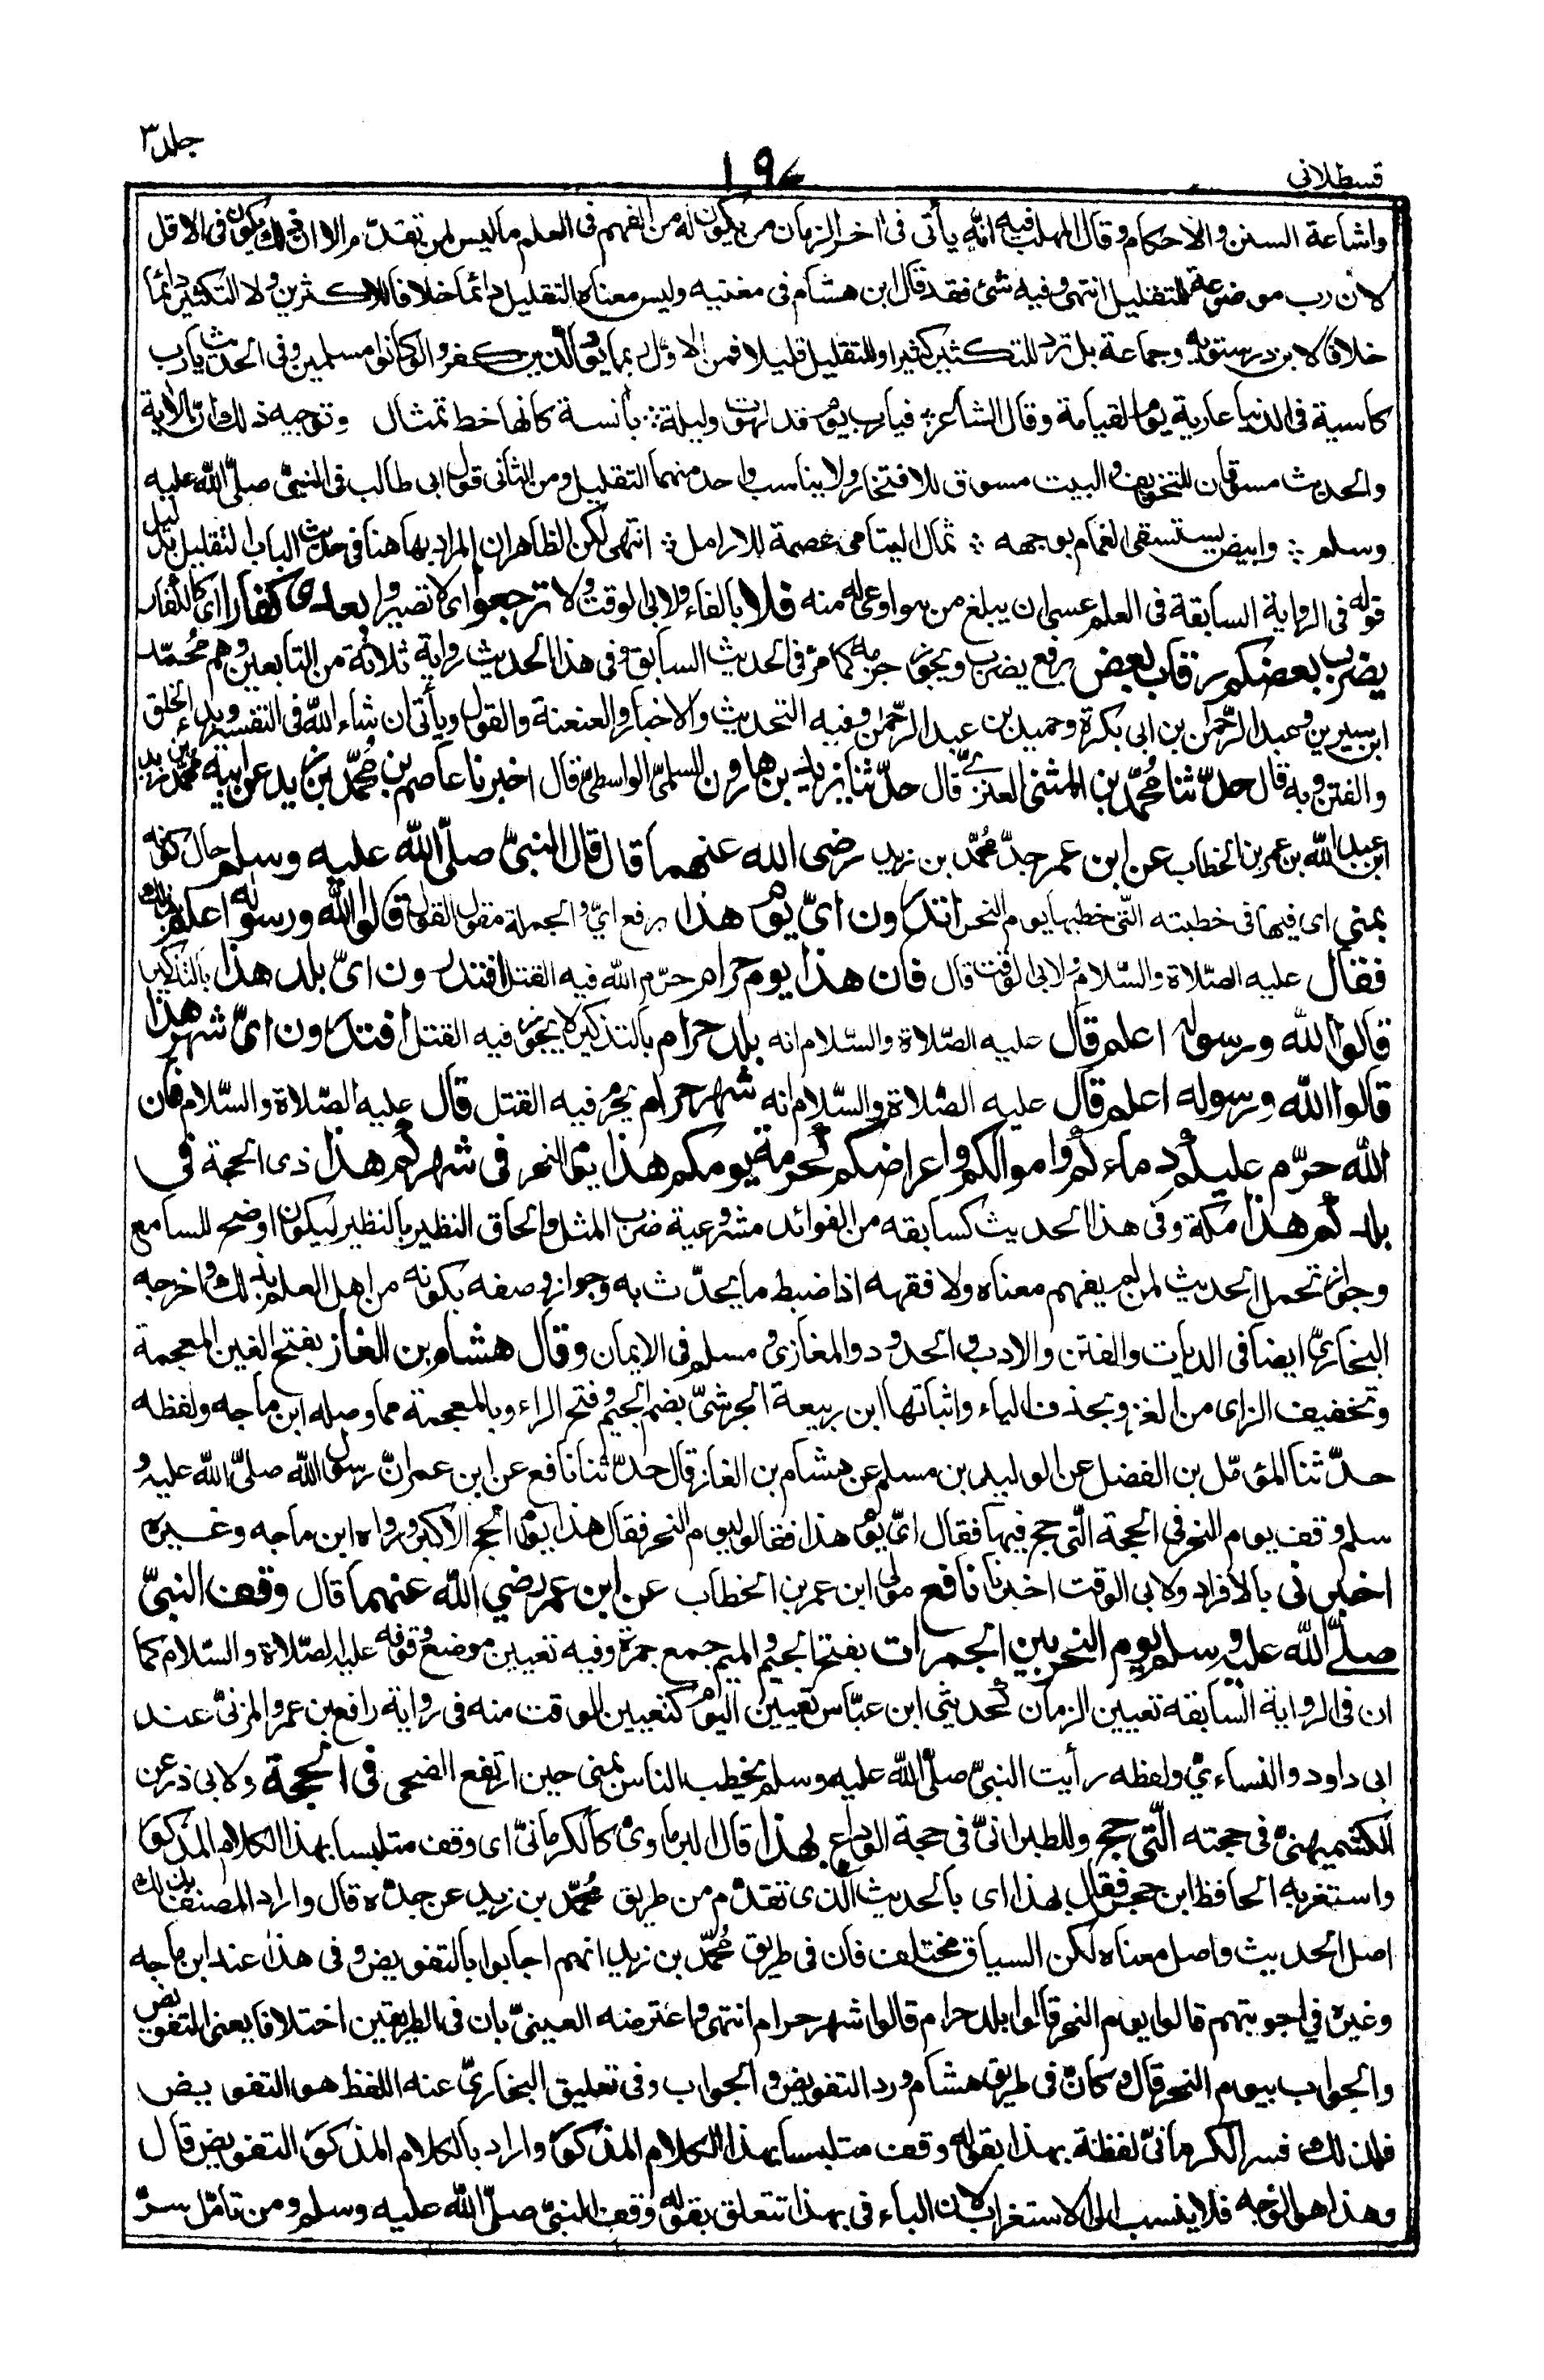 جلد ٣
١٩٧
قسطلاني
واشاعة السنن والاحكام وقال المهلب فيه انه يأتى فى اخر الزمان من يكون له من الفهم فى العلم ما ليس لمن تقدّم الا ان ذلك يكون فى الاقل
لان رب موضوعة للتقليل انتهى وفيه شئ فقد قال ابن هشام فى مغنيه وليس معناه التقليل دائما خلافا للاكثرين ولا التكثير دائما
خلافا لابن درستويه وجماعة بل ترد للتكثير كثيرا وللتقليل قليلا فمن الاوّل ربما يودّ الذين كفروا لو كانوا مسلمين وفى الحديث يا رب
كاسية فى الدنيا عارية يوم القيامة وقال الشاعر ∴ فيا رب يوم قد لهوت وليلة ∴ بآنسة كانها خط تمثال وتوجيه ذلك ان الاية
والحديث مسوقان للتخويف والبيت مسوق للافتخار ولا يناسب واحد منهما التقليل ومن الثانى قول ابى طالب فى النبىّ صلّى الله عليه
وسلم ∴ وابيض يستسقى الغمام بوجهه ∴ ثمال اليتامى عصمة للارامل ∴ انتهى لكن الظاهر ان المراد بها هنا فى حديث الباب التقليل بدليل
قوله فى الرواية السابقة فى العلم عسى ان يبلغ من هو اوعى له منه فلا بالفاء ولابى الوقت ولا ترجعوا اى لا تصيروا بعدى كفارا اى كالكفار
يضرب بعضكم رقاب بعض برفع يضرب ويجوز جزمه كما مرّ فى الحديث السابق وفى هذا الحديث رواية ثلاثة من التابعين وهم مُحمّد
ابن سيرين وعبد الرّحمن بن ابى بكرة وحميد بن عبد الرّحمن وفيه التحديث والاخبار والعنعنة والقول ويأتى ان شاء الله فى التفسير وبدء الخلق
والفتن وبه قال حدّثنا مُحمّد بن المثنى العنزىّ قال حدّثنا يزيد بن هارون السلمىّ الواسطىّ قال اخبرنا عاصم بن مُحمّد بن زيد عن ابيه مُحمّد بن زيد
ابن عبد الله بن عمر بن الخطاب عن ابن عمر جدّ مُحمّد بن زيد رضى الله عنهما قال قال النبىّ صلّى الله عليه وسلم حال كونه
بمنى اى فيها فى خطبته التّى خطبها يوم النحر اتدرون اىّ يوم هذا برفع اىّ والجملة مقول القول قالوا الله ورسوله اعلم بذلك
فقال عليه الصّلاة والسّلام ولابى الوقت قال فان هذا يوم حرام حرّم الله فيه القتل افتدرون اىّ بلد هذا بالتذكير
قالوا الله ورسوله اعلم قال عليه الصّلاة والسّلام انه بلد حرام بالتذكير لا يجوز فيه القتل افتدرون اىّ شهر هذا
قالوا الله ورسوله اعلم قال عليه الصّلاة والسّلام انه شهر حرام يحرم فيه القتل قال عليه الصّلاة والسّلام فان
الله حرّم عليكم دماءكم واموالكم واعراضكم كحرمة يومكم هذا يوم النحر فى شهركم هذا ذى الحجة فى
بلدكم هذا مكة وفى هذا الحديث كسابقه من الفوائد مشروعية ضرب المثل والحاق النظير بالنظير ليكون اوضح للسامع
وجواز تحمل الحديث لمن لم يفهم معناه ولا فقهه اذا ضبط ما يحدّث به وجواز وصفه بكونه من اهل العلم بذلك واخرجه
البخارىّ ايضا فى الديات والفتن والادب والحدود والمغازى ومسلم فى الايمان وقال هشام بن الغاز بفتح الغين المعجمة
وتخفيف الزاى من الغزو بحذف الياء واثباتها ابن ربيعة الجرشىّ بضم الجيم وفتح الراء وبالمعجمة مما وصله ابن ماجه ولفظه
حدّثنا المؤمّل بن الفضل عن الوليد بن مسلم عن هشام بن الغاز قال حدّثنا نافع عن ابن عمر انّ رسول الله صلّى الله عليه و
سلم وقف يوم النحر فى الحجة الّتى حج فيها فقال اىّ يوم هذا فقالوا يوم النحر فقال هذا يوم الحج الاكبر ورواه ابن ماجه وغيره
اخبرنى بالافراد ولابى الوقت اخبرنا نافع مولى ابن عمر بن الخطاب عن ابن عمر رضي الله عنهما قال وقف النبىّ
صلّى الله عليه وسلم يوم النحر بين الجمرات بفتح الجيم والميم جمع جمرة وفيه تعيين موضع وقوفه عليه الصّلاة والسّلام كما
ان فى الرواية السابقة تعيين الزمان كحديثى ابن عبّاس تعيين اليوم كتعيين الوقت منه فى رواية رافع بن عمرو المزنىّ عند
ابى داود والنساءىّ ولفظه رأيت النبىّ صلّى الله عليه وسلم يخطب الناس بمنى حين ارتفع الضحى فى الحجة ولابى ذر عن
الكشميهنىّ فى حجته الّتى حج وللطبرانىّ فى حجة الوداع بهذا قال البرماوىّ كالكرمانىّ اى وقف متلبسا بهذا الكلام المذكور
واستغربه الحافظ ابن حجر فقال بهذا اى بالحديث الّذى تقدّم من طريق مُحمّد بن زيد عن جدّه قال واراد المصنف بذلك
اصل الحديث واصل معناه لكن السياق مختلف فان فى طريق مُحمّد بن زيد انهم اجابوا بالتفويض وفى هذا عند ابن ماجه
وغيره فى اجوبتهم قالوا يوم النحر قالوا بلد حرام قالوا شهر حرام انتهى واعترضه العينىّ بان فى الطريقين اختلافا يعنى التفويض
والجواب بيوم النحر قال وكان فى طريق هشام ورد التفويض والجواب وفى تعليق البخارىّ عنه اللفظ هو التفويض
فلذلك فسر الكرمانىّ لفظة بهذا بقوله وقف متلبسا بهذا الكلام المذكور واراد بالكلام المذكور التفويض قال
وهذا هو الوجه فلا ينسب الى الاستغراب لان الباء فى بهذا تتعلق بقوله وقف النبىّ صلّى الله عليه وسلم ومن تأمّل سرّ